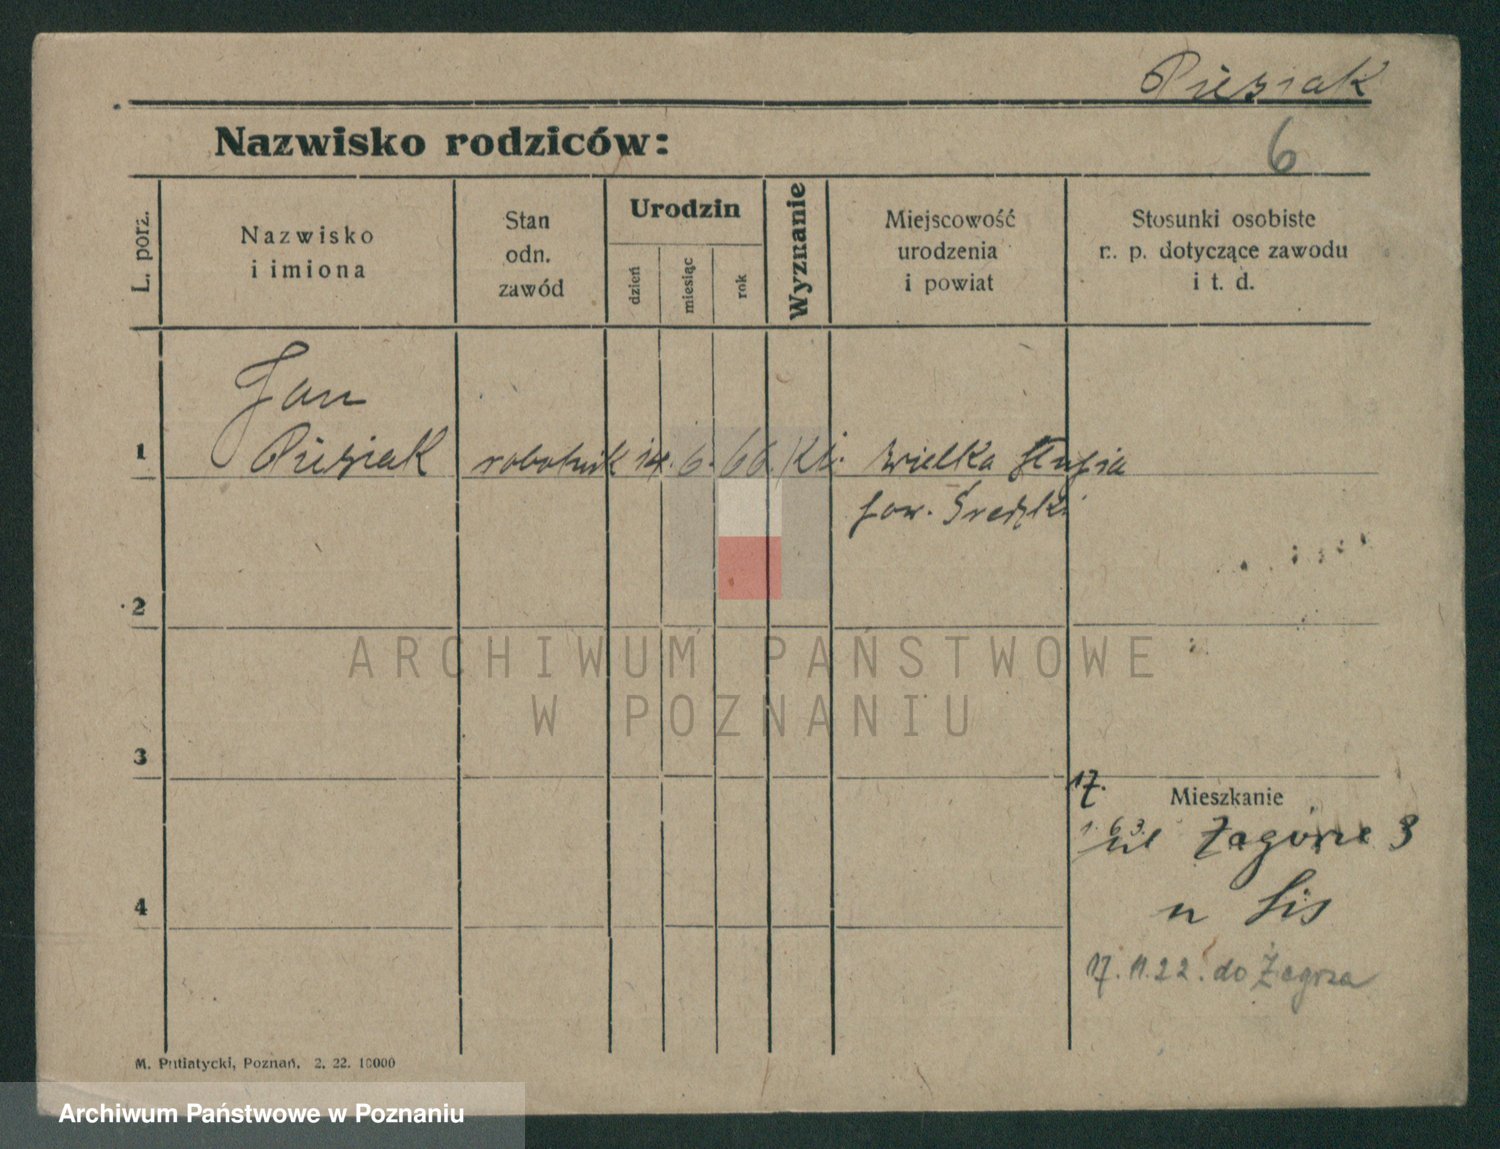 Piesiak
Nazwisko rodziców:
6
L. porz.
Nazwisko
i imiona
Stan
odn.
zawód
Urodzin
dzień
miesiąc
rok
Wyznanie
Miejscowość
urodzenia
i powiat
Stosunki osobiste
n. p. dotyczące zawodu
i t. d.
Jan
1 Piesiak robotnik 14. 6. 66. kt. Wielka Slupia
pow. Średzki
2
ARCHIWUM PAŃSTWOWE
W POZNANIU
3
17. Mieszkanie
Zagórze 3
u Lis
4
17. 11. 22. do Zagrza
M. Putiatycki, Poznań, 2. 22. 10000
Archiwum Państwowe w Poznaniu